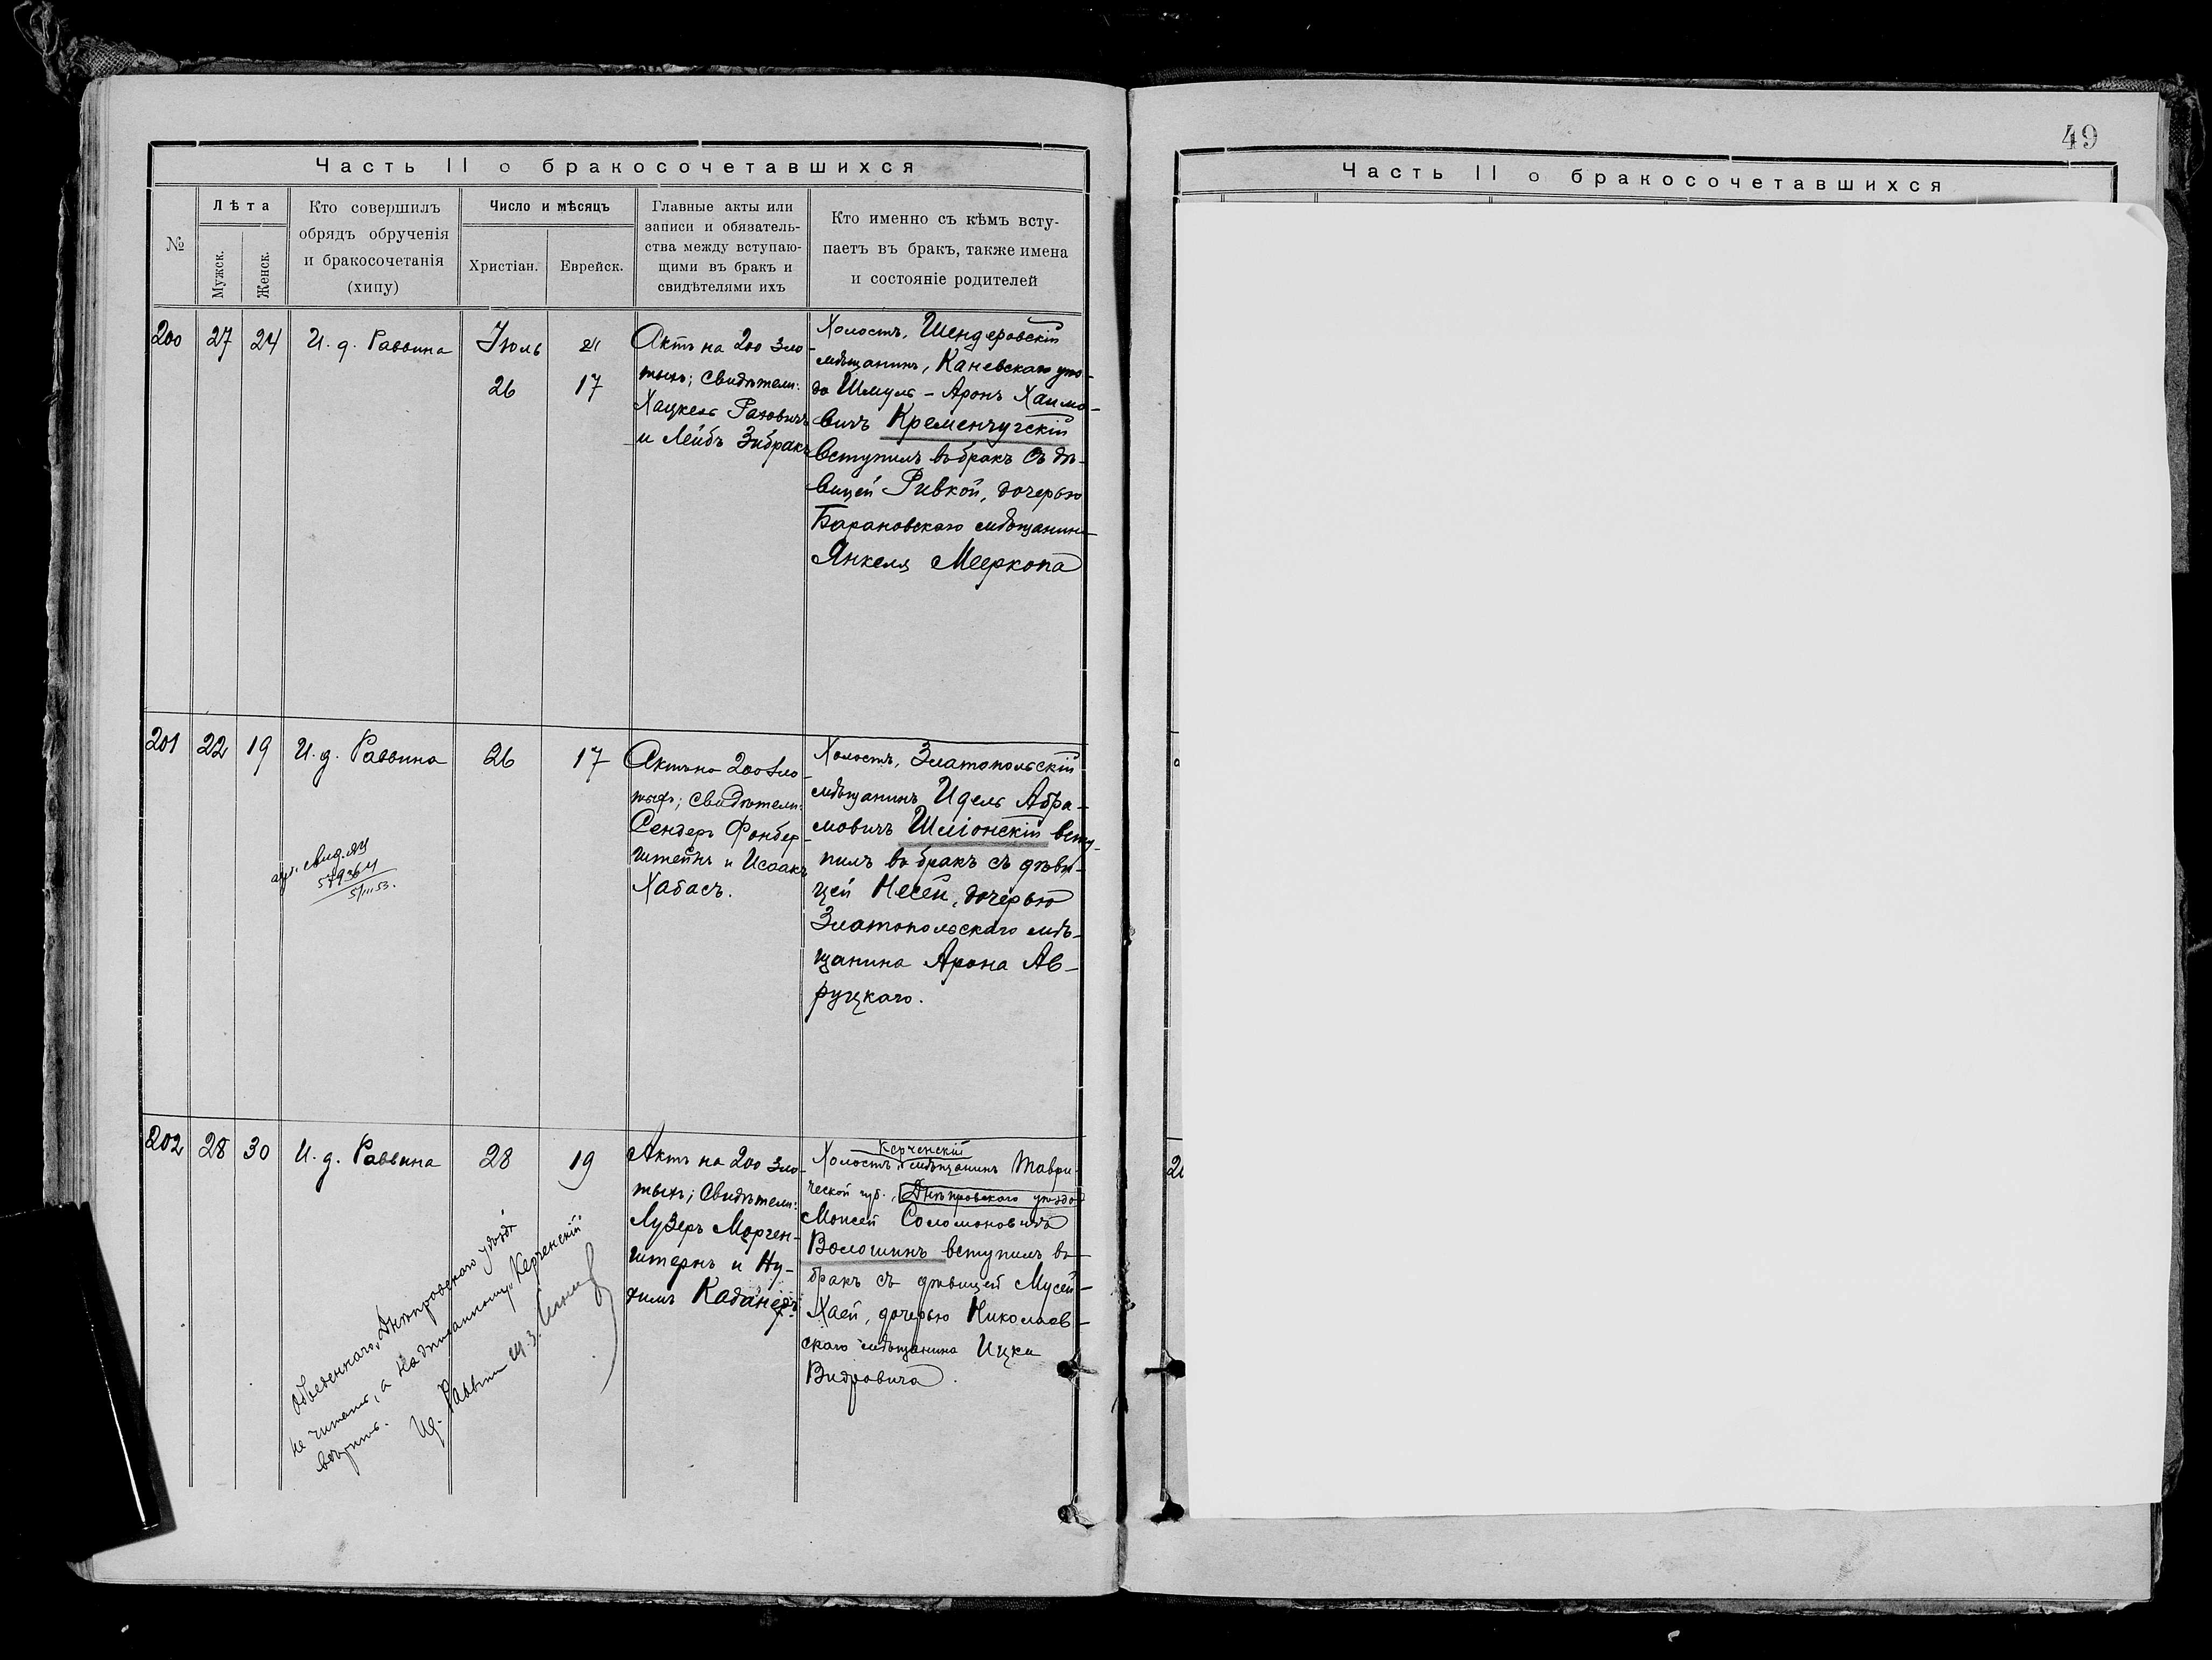 49
Часть II о бракосочетавшихся
№
Лѣта
Мужск.
Женск.
Кто совершилъ
обрядъ обрученія
и бракосочетанія
(хипу)
Число и мѣсяцъ
Христіан.
Еврейск.
Главные акты или
записи и обязатель-
ства между вступаю-
щими въ бракъ и
свидѣтелями ихъ
Кто именно съ кѣмъ всту-
паетъ въ бракъ, также имена
и состояніе родителей
200
27
24
И. д. Раввина
Іюль
26
17
Актъ на 200 зло-
тыхъ; Свидѣтели:
Хацкель
и Лейбъ Зибракъ
Холостъ, Шендеровскій
мѣщанинъ, Каневскаго уѣз-
да Шмуль-Аронъ Хаимо-
вичъ Кременчугскій
вступилъ въ бракъ съ дѣ-
вицей Ривкой, дочерью
Барановскаго мѣщанина
Янкеля Мееркопа
201
22
19
И. д. Раввина
26
17
Актъ на 200 зло-
тыхъ; свидѣтели:
Сендеръ Фонбер-
штейнъ и Исаакъ
Хабасъ.
Холостъ, Златопольскій
мѣщанинъ Идель Абра-
мовичъ Шліонскій всту-
пилъ въ бракъ съ дѣви-
цей Несей, дочерью
Златопольскаго мѣ-
щанина Арона Ав-
руцкаго.
202
28
30
И. д. Раввина
28
19
Актъ на 200 зло-
тыхъ; Свидѣтели:
Лузеръ Морген-
штернъ и Ну-
химъ
Керченскій
Холостъ, мѣщанинъ Таври-
ческой губ., Днѣпровскаго уѣзда
Моисей Соломоновичъ
Волошинъ вступилъ въ
бракъ съ дѣвицей Мусей-
Хаей, дочерью Николаев-
скаго мѣщанина Ицки
Видровича.
Обведеннаго „Днѣпровскаго уѣзда"
не читать, а надписанному „Керченскій"
вѣрить.
И.д. Раввина
Часть II о бракосочетавшихся